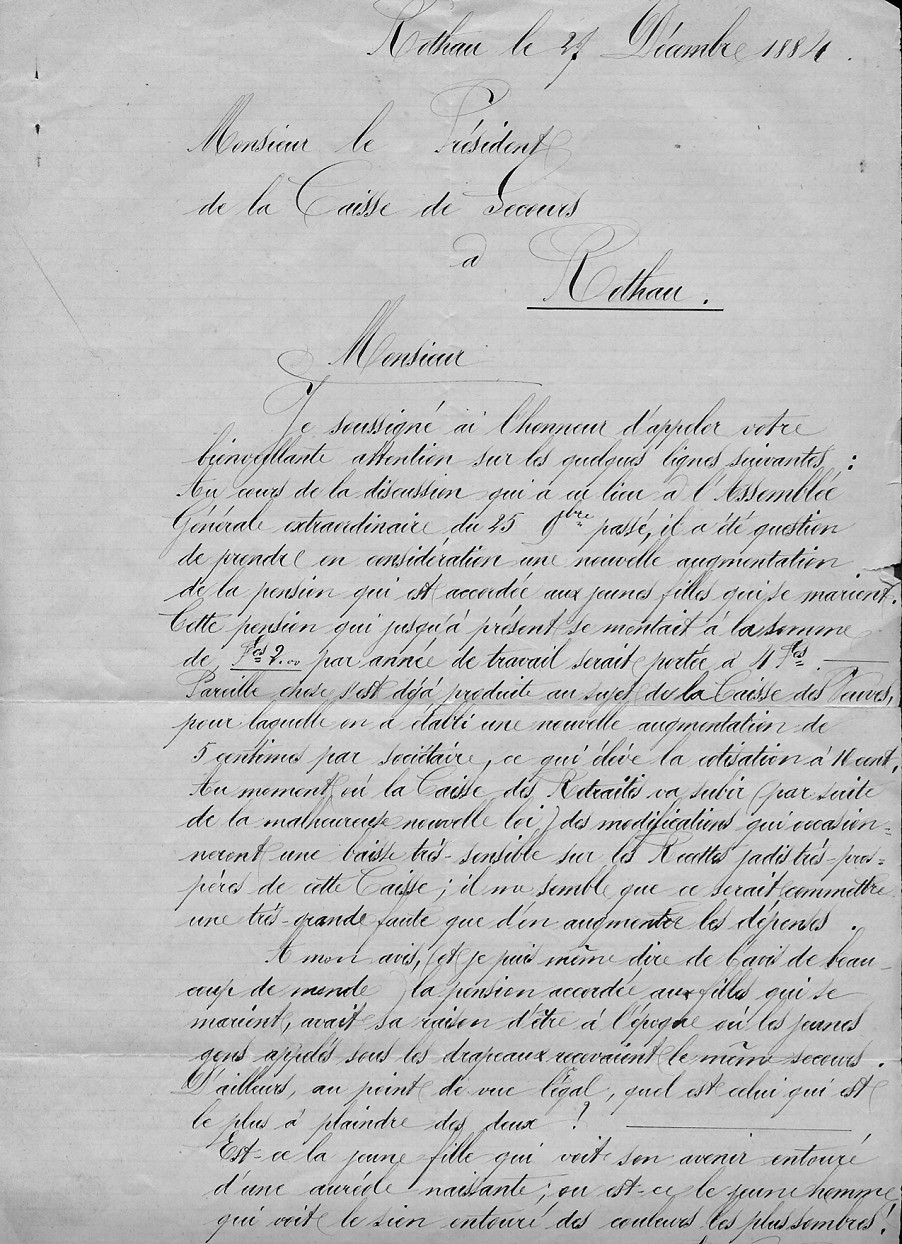 Rothau le 27 Décembre 1884.
Monsieur le Président
de la Caisse de Secours
à
Rothau.
Monsieur
Je soussigné ai l'honneur d'appeler votre
bienveillante attention sur les quelques lignes suivantes :
Au cours de la discussion qui a eu lieu à l'Assemblée
Générale extraordinaire du 25 9bre passé, il a été question
de prendre en considération une nouvelle augmentation
de la pension qui est accordée aux jeunes filles qui se marient.
Cette pension qui jusqu'à présent se montait à la somme
de Fcs 2.00 par année de travail serait portée à 4 Fcs.
Pareille chose s'est déjà produite au sujet de la Caisse des Veuves,
pour laquelle on a établi une nouvelle augmentation de
5 centimes par sociétaire, ce qui élève la cotisation à 10 cent.
Au moment où la Caisse des Retraités va subir (par suite
de la malheureuse nouvelle loi) des modifications qui occasion=
neront une baisse très-sensible sur les Recettes jadis très-pros=
pères de cette Caisse ; il me semble que ce serait commettre
une très-grande faute que d'en augmenter les dépenses.
A mon avis, (et je puis même dire de l'avis de beau-
coup de monde) la pension accordée aux filles qui se
marient, avait sa raison d'être à l'époque où les jeunes
gens appelés sous les drapeaux recevaient le même secours.
D'ailleurs, au point de vue légal, quel est celui qui est
le plus à plaindre des deux ?
Est-ce la jeune fille qui voit son avenir entouré
d'une auréole naissante ; ou est-ce le jeune homme
qui voit le sien entouré des couleurs les plus sombres !